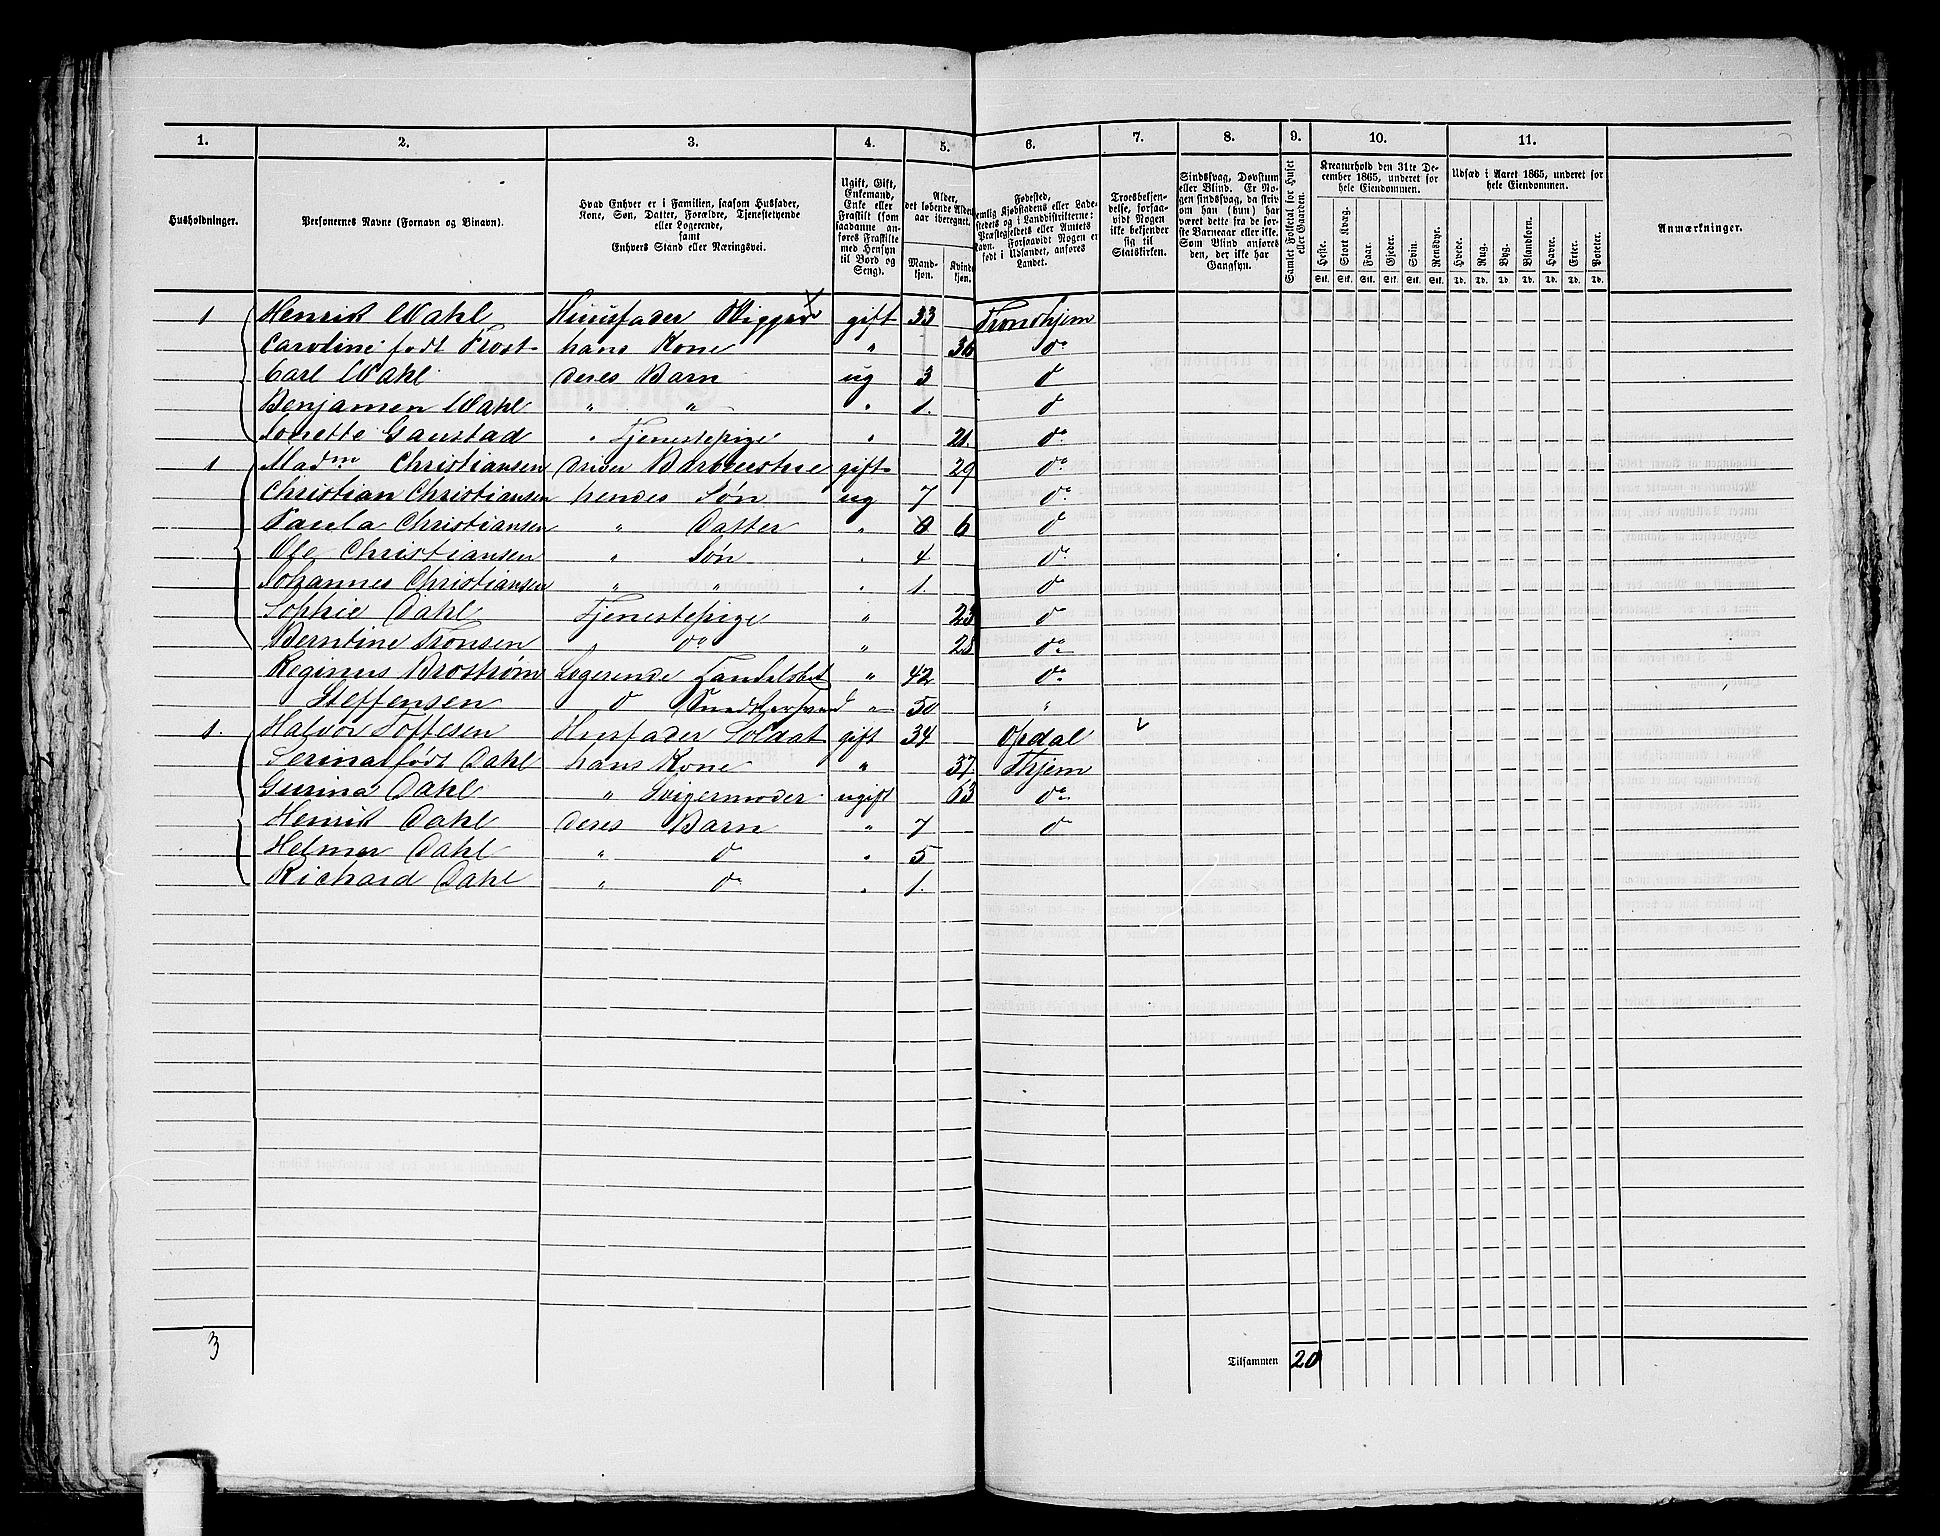 1. 2. 3. 4. 5. 6. 7. 8. 9. 10. 11.
Husholdninger.
Personernes Navne (Fornavn og Binavn).
Hvad Enhver er i Familien, saasom Husfader,
Kone, Søn, Datter, Forældre, Tjenestetyende
eller Logerende,
samt
Enhvers Stand eller Næringsvei.
Ugift, Gift,
Enkemand,
Enke eller
Fraskilt (som
saadanne an-
føres Fraskilte
med Hensyn
til Bord og
Seng).
Alder,
det løbende Alders-
aar iberegnet.
Mand-
kjøn.
Kvinde-
kjøn.
Fødested,
nemlig Kjøbstadens eller Lade-
stedets og i Landdistrikterne:
Præstegjeldets eller Annexets
Navn. Forsaavidt Nogen er
født i Udlandet, anføres
Landet.
Troesbekjen-
delse, forsaa-
vidt Nogen
ikke bekjender
sig til
Statskirken.
Sindssvag, Døvstum
eller Blind. Er No-
gen sindssvag, da skriv
om han (hun) har
været dette fra de før-
ste Barneaar eller ikke.
Som Blind anføres
den, der ikke har
Gangsyn.
Samlet Folketal for Huset
eller Gaarden.
Kreaturhold den 31te De-
cember 1865, underet for
hele Eiendommen.
Heste. Stort Kvæg. Faar. Gjeder. Sviin. Rensdyr.
Stk. Stk. Stk. Stk. Stk. Stk.
Udsæd i Aaret 1865, underet for
hele Eiendommen.
Hvede. Rug. Byg. Blandkorn. Havre. Erter. Poteter.
Td. Td. Td. Td. Td. Td. Td.
Anmærkninger.
1 Henrik Wahl Huusfader gift 33 Trondhjem
Caroline født Frost hans Kone " 36 do
Carl Wahl deres Barn ug 3 do
Benjamen Wahl " " " 1. do
Gaustad " Tjenestepige " 21. do
1 Madm Christiansen gift 29 do
Christian Christiansen hendes Søn ug 7 do
Paula Christiansen " Datter " 6 do
Ole Christiansen " Søn " 4 do
Johannes Christiansen " " " 1. do
Sophie Dahl Tjenestepige " 23 do
Berntine Tronsen do " 28 do
Reginus Brostrøm Logerende " 42 do
Steffensen do " 50 "
1. Halvor Husfader Soldat gift 34 Opdal
Serina født Dahl hans Kone " 37 Thjem
Gurina Dahl " Svigermoder ugift 53 do
Henrik Dahl deres Barn " 7 do
Helmer Dahl " do " 5
Richard Dahl " do " 1.
3 Tilsammen 20